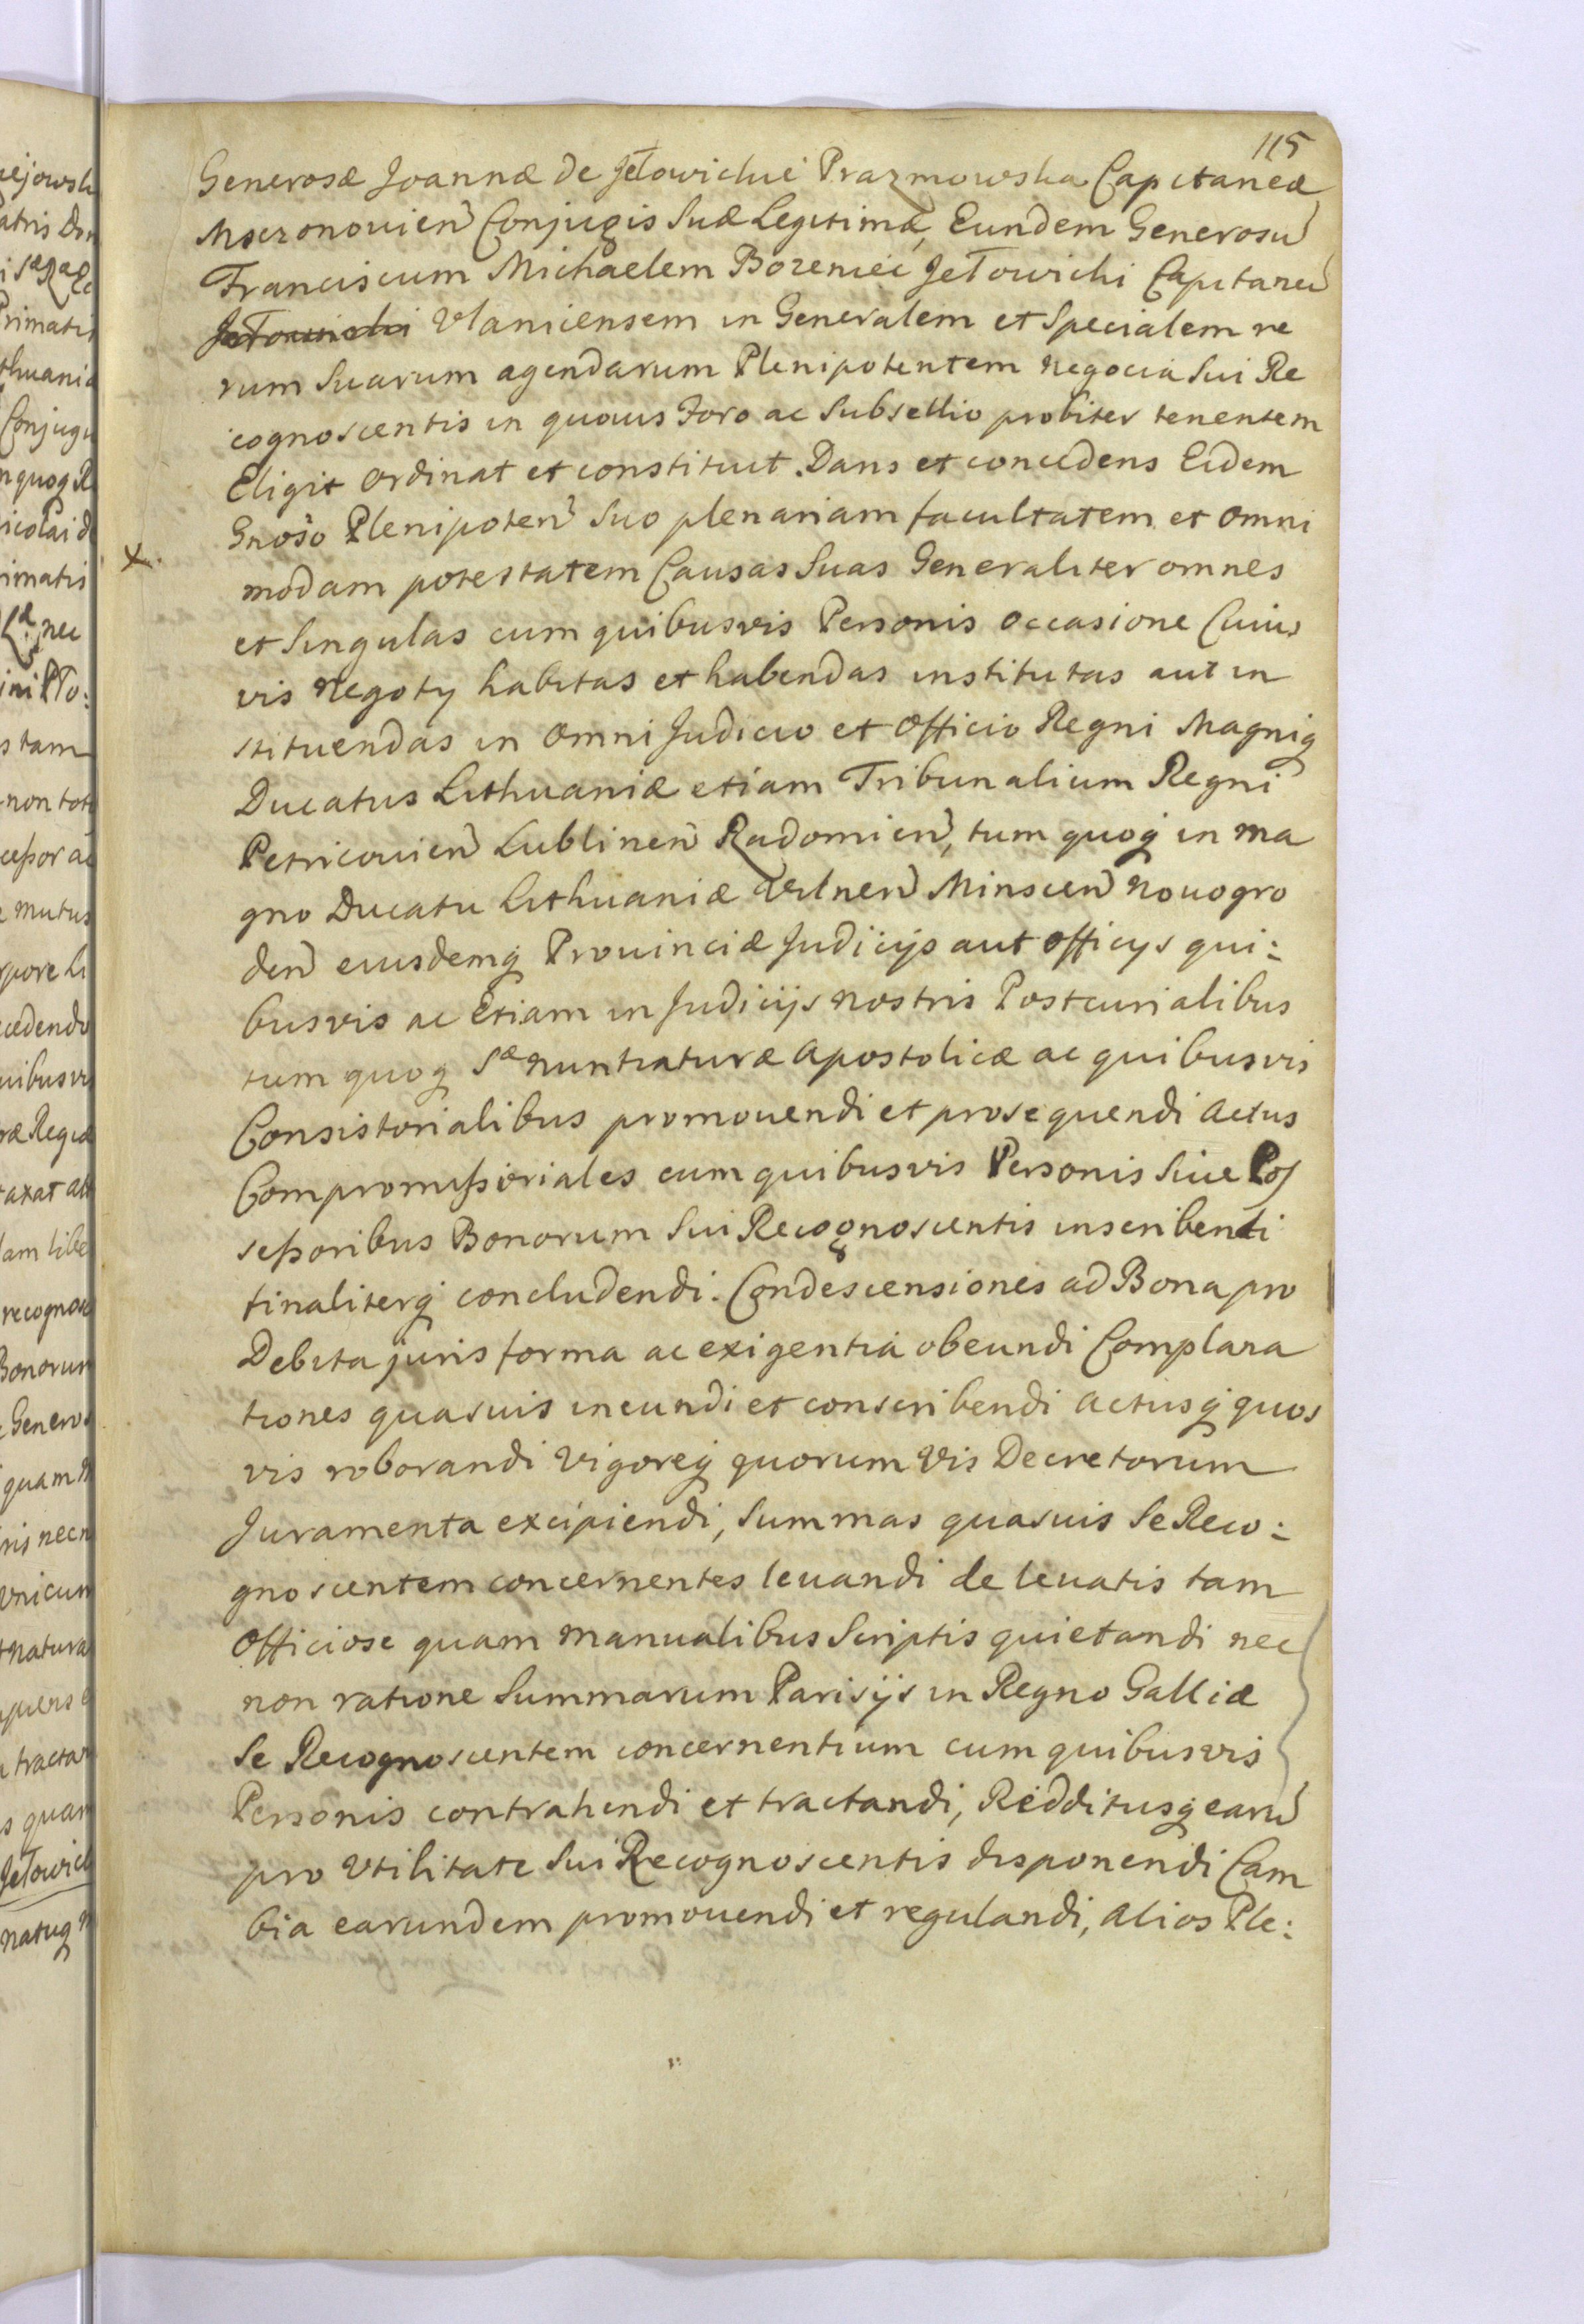 115
Generosæ Joannæ de Jełowickie Prazmowska Capitaneæ
Mszczonovien Conjugis Suæ Legitimæ, Eundem Generosū
Franciscum Michaelem Bozeniec Jełowicki Capitaneū
Jełowicki Ulanicensem in Generalem et Specialem re
rum Suarum agendarum Plenipotentem negocia Sui Re
cognoscentis in quovis Foro ac Subsellio probiter tenentem
Eligit Ordinat et constituit. Dans et concedens Eidem
Gnoso Plenipoten Suo plenariam facultatem et omni
x
modam potestatem Causas Suas Generaliter omnes
et Singulas cum quibusvis Personis occasione Cuius
vis Negoty habitas et habendas institutas aut in
stituendas in Omni Judicio et Officio Regni Magniq
Ducatus Lithuaniæ etiam Tribunalium Regni
Petricovien Lublinen Radomien, tum quoq in ma
gno Ducatu Lithuaniæ Vilnen Minscen Novogro
den eiusdemq Provinciæ Judicijs aut officys qui:
busvis ac Etiam in Judicijs nostris Postcurialibus
tum quoq Sæ Nuntiaturæ Apostolicæ ac quibusvis
Consistorialibus promovendi et prosequendi Actus
Compromissoriales cum quibusvis Personis Sive Pos
sessoribus Bonorum Sui Recognoscentis inscribendi
finaliterq concludendi. Condescensiones ad Bona pro
Debita juris forma ac exigentia obeundi Complana
tiones quasvis ineundi et conscribendi Actusq quos
vis roborandi Vigoreq quorum Vis Decretorum
Juramenta excipiendi, Summas quasvis Se Reco:
gnoscentem concernentes levandi de levatis tam
Officiose quam manualibus Scriptis quietandi nec
non ratione Summarum Parisijs in Regno Galliæ
Se Recognoscentem concernentium cum quibusvis
Personis contrahendi et tractandi, Redditusq earū
pro Utilitate Sui Recognoscentis disponendi Cam
bia earundem promovendi et regulandi, Alios Ple: